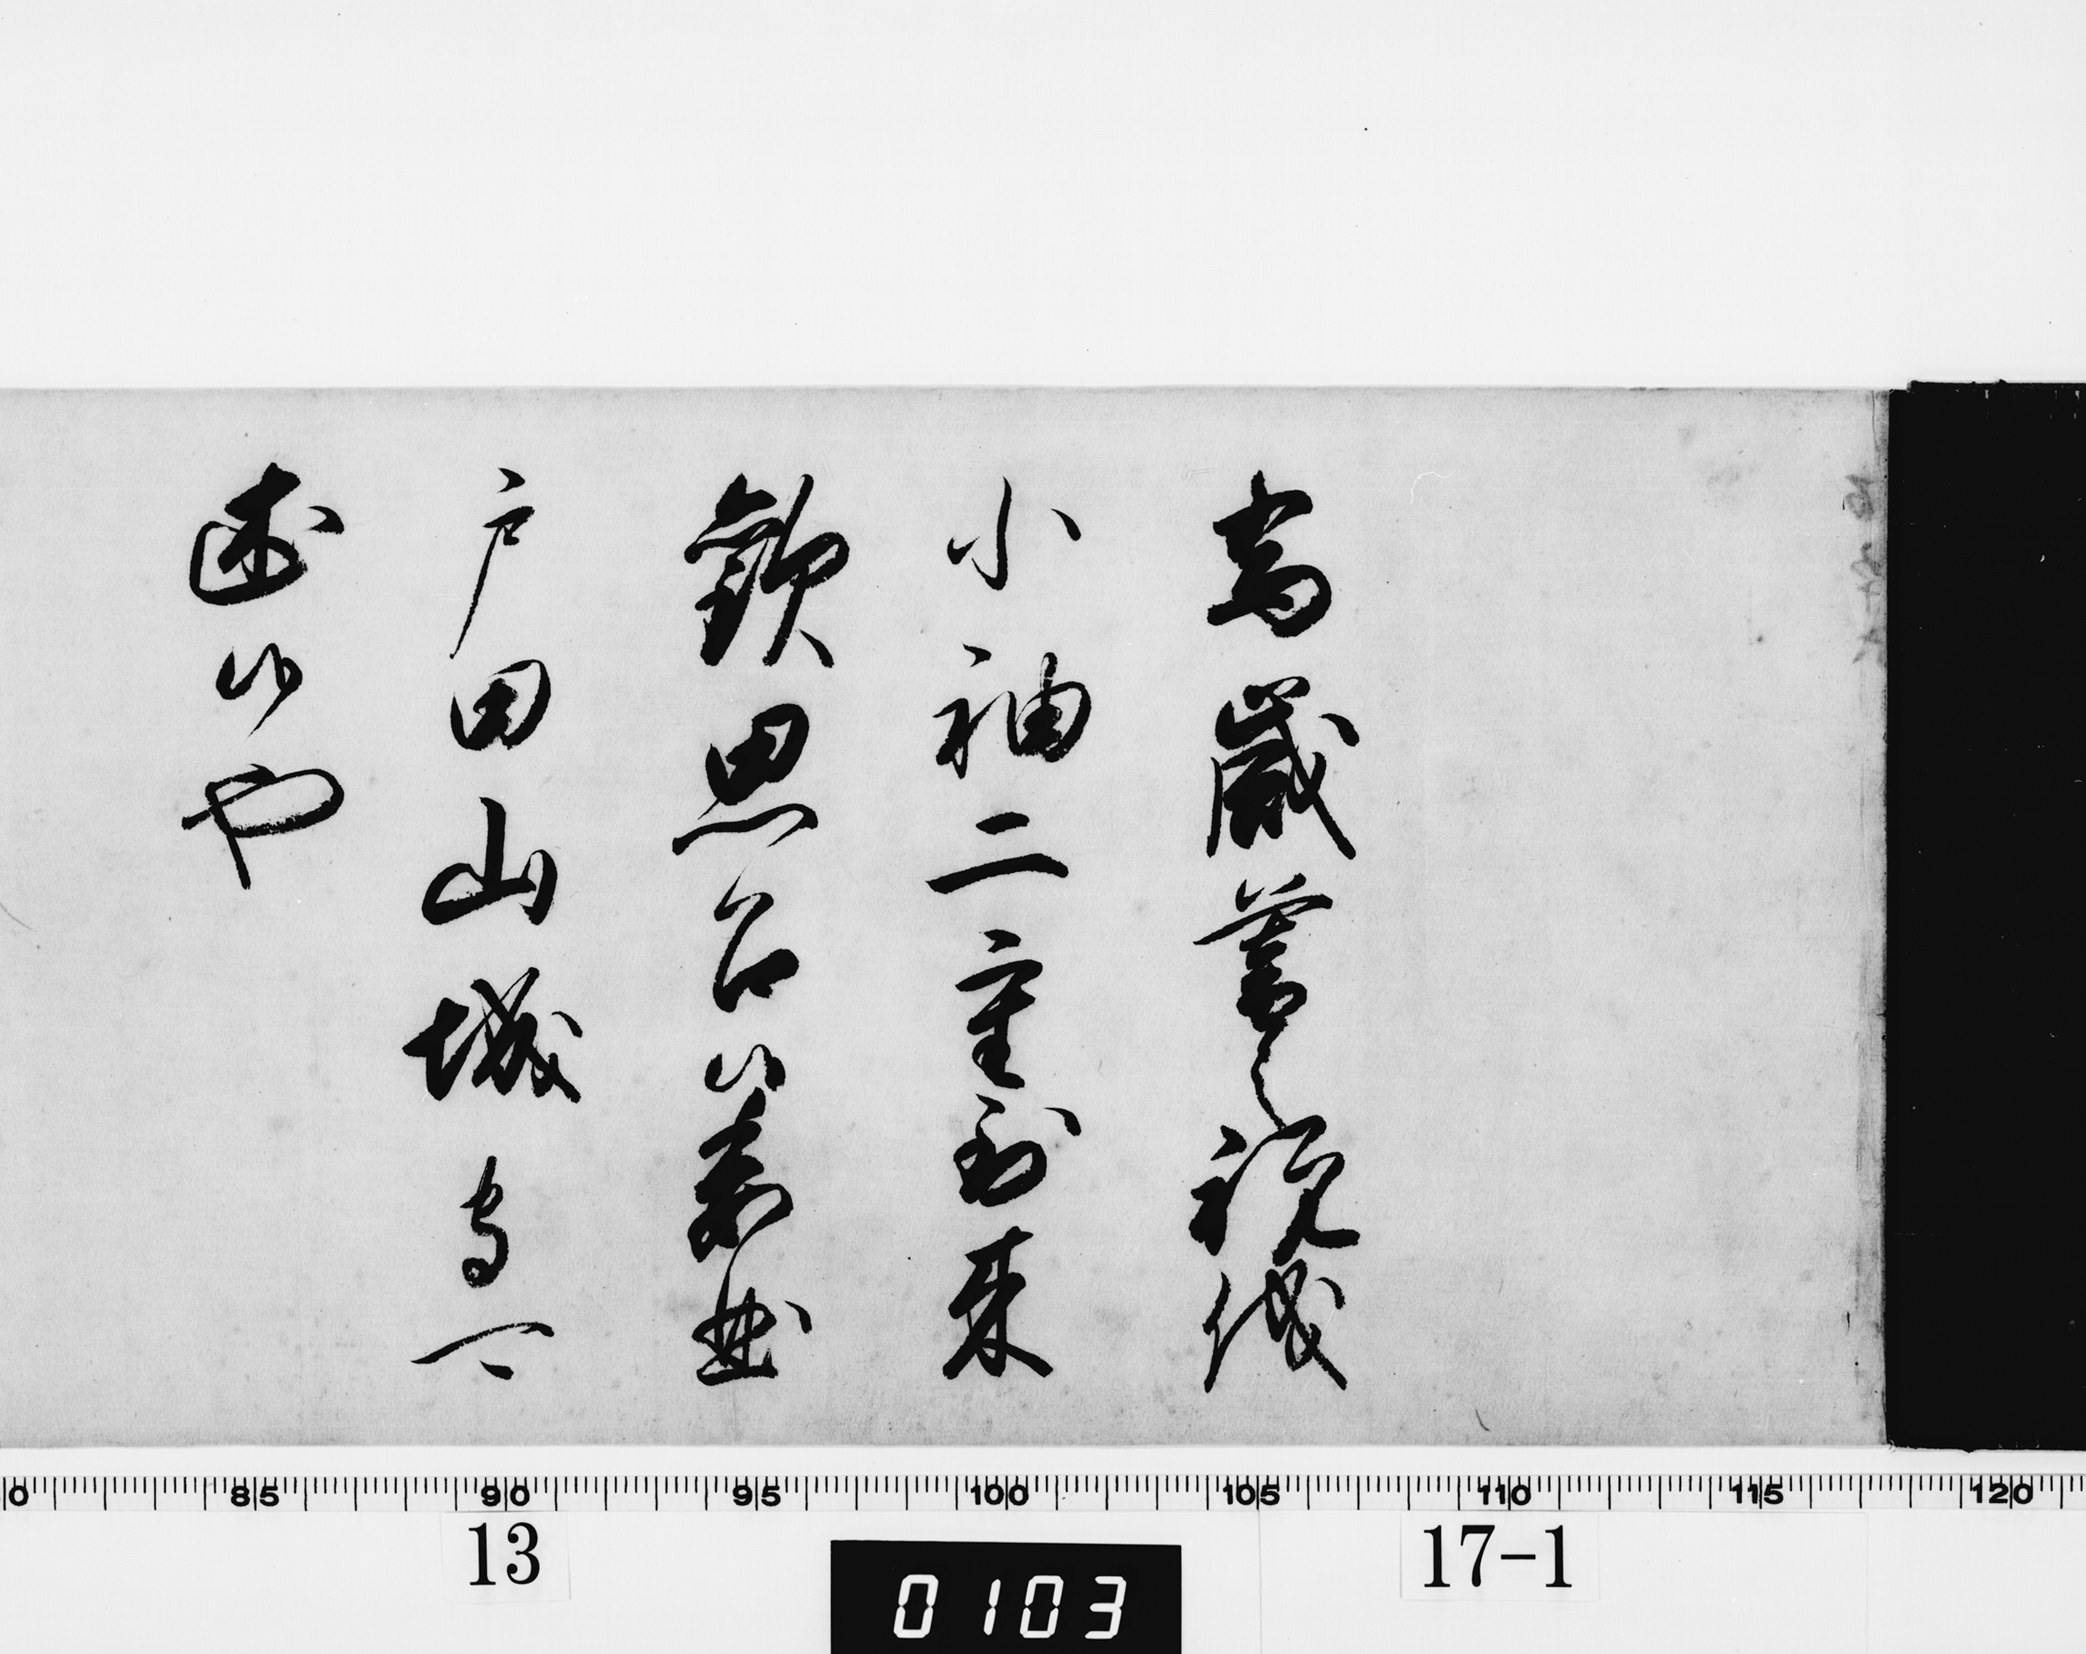 為歳暮之祝儀
小袖二重到来
歓思召候委曲
戸田山城守可
述候也
80 85 90 95 100 105 110 115 120
13
0103
17-1